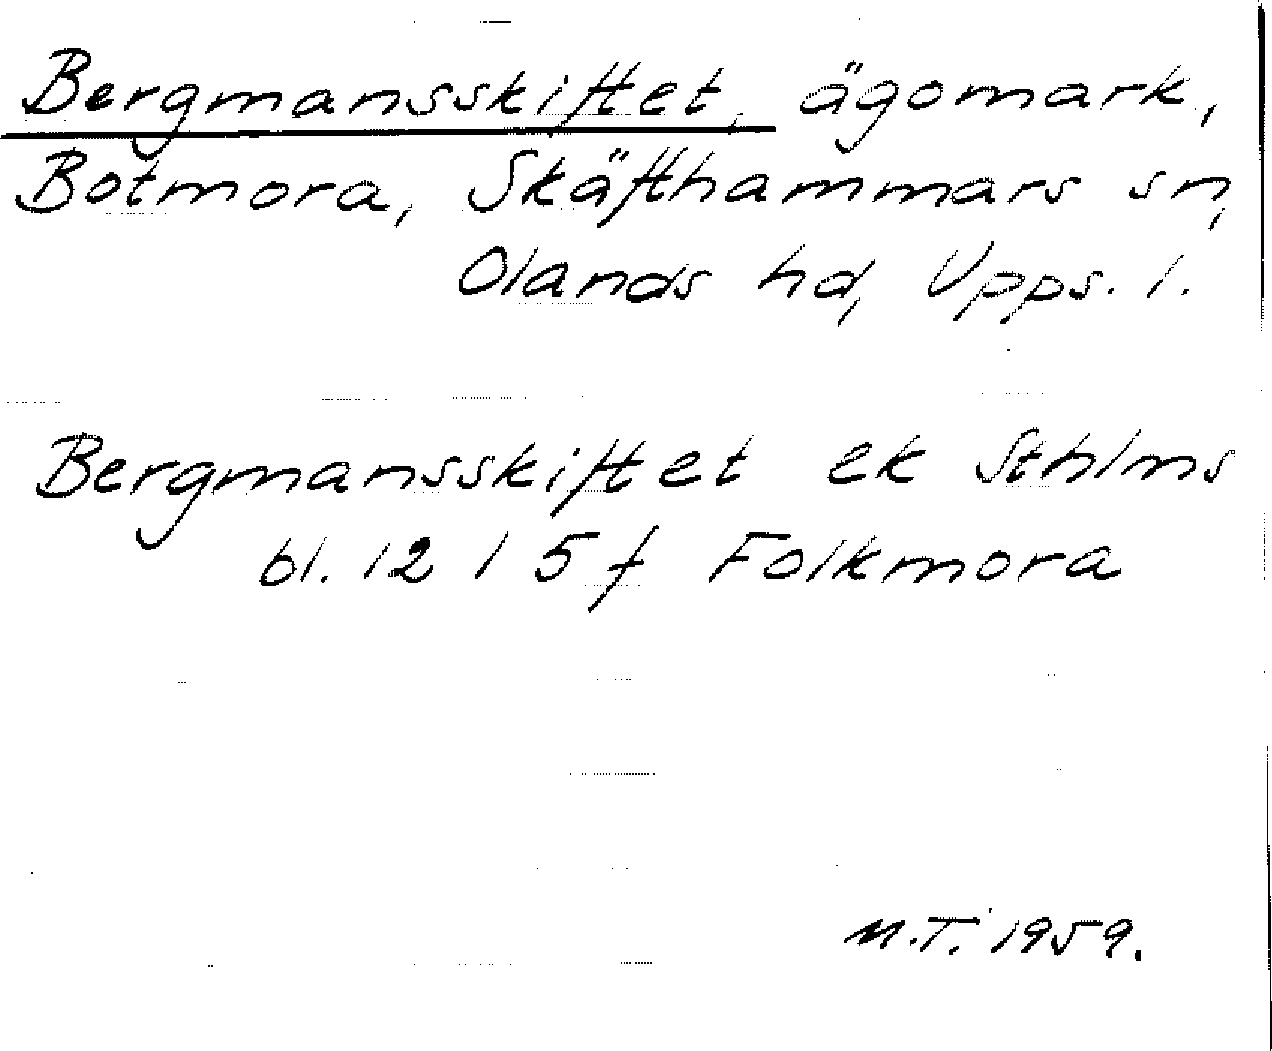 Bergmansskiftet, ägomark,
Botmora, Skäfthammars sn,
Olands hd, Upps. l.
Bergmansskiftet ek Sthlms
bl. 12 1 5 f Folkmora
M.T. 1959.